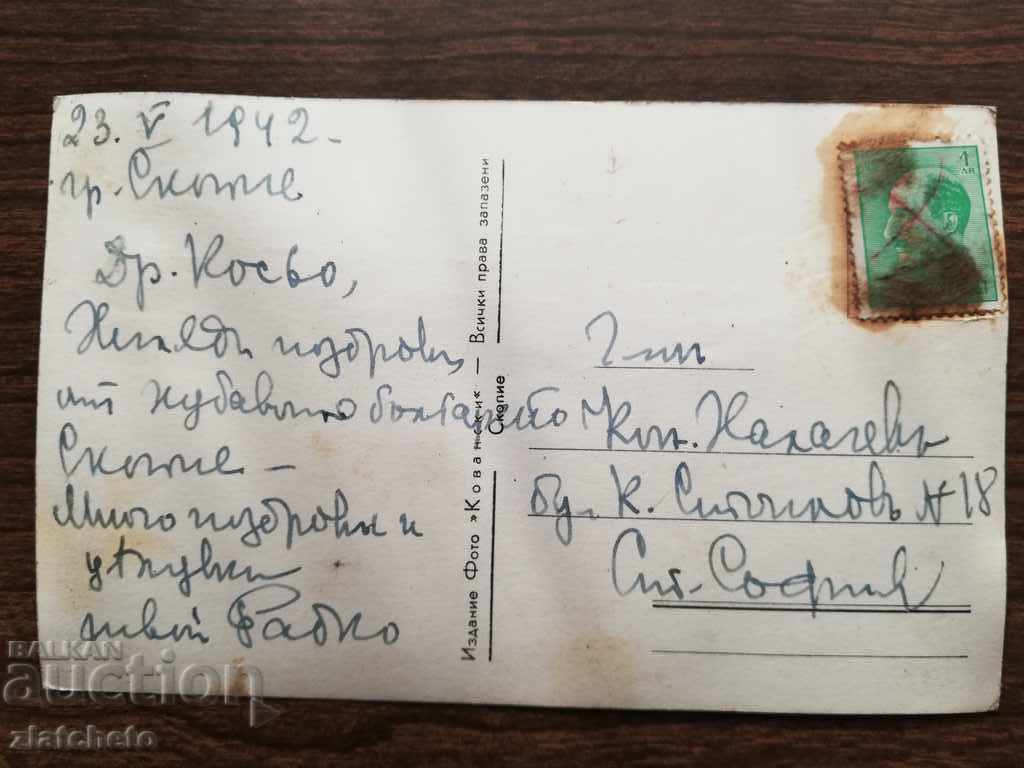 23. V 1942 -
гр. Скопие
Др. Косьо,
Хиляди поздрави,
от хубавото българско
Скопие -
Много поздрави и
целувки
твой
Издание Фото »Ковански« — Всички права запазени
Скопие
1
ЛВ
Г-нъ
Кон.
бул. К. Стоиловъ № 18
Ст. София
BALKAN
auction
zlatcheto